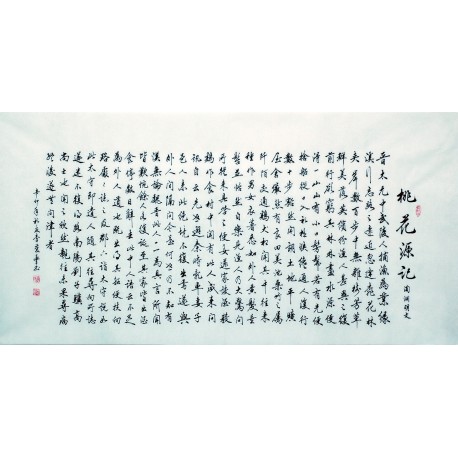 桃花源記
陶渊明文
晉太元中武陵人捕漁為業緣
溪行忘路之遠近忽逢桃花林
夹岸數百步中無雜樹芳草
鮮美落英缤纷渔人甚異之復
前行欲窮其林林盡水源便
得一山山有小口髣髴若有光便
捨船從口入初極狭才通人復行
數十步豁然開朗土地平曠
屋舍儼然有良田美池桑竹之属
阡陌交通鷄犬相聞其中往来
種作男女衣着悉如外人黄髮垂
髫並怡然自樂見渔人乃大驚
問所從来具答之便要還家設酒殺
鷄作食村中聞有此人咸来問
訊自云先世避秦時亂率妻子
邑人来此絶境不復出焉遂與
外人間隔問今是何世乃不知有
漢無論魏晋此人一一為具言所聞
皆歎惋餘人各復延至其家皆出酒
食停數日辭去此中人語云不足
為外人道也既出得其船便扶向
路處處誌之及郡下詣太守說如
此太守即遣人随其往尋向所誌
遂迷不復得路南陽劉子驥高
尚士也聞之欣然規往未果尋病
終後遂無問津者
辛卯年秋